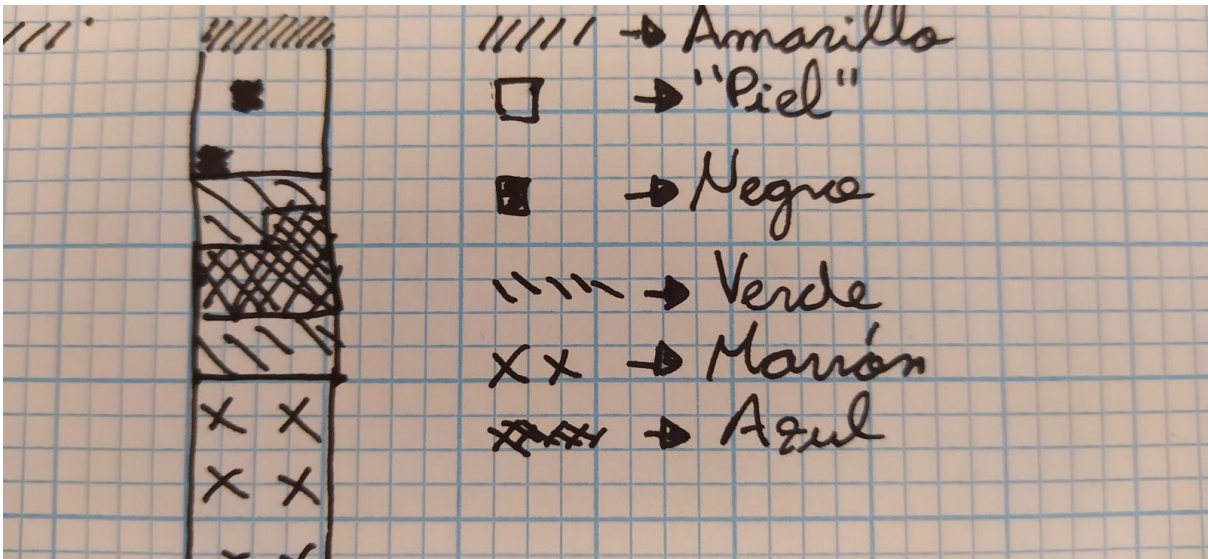 Amarillo
"Piel"
Negro
Verde
Marrón
Azul